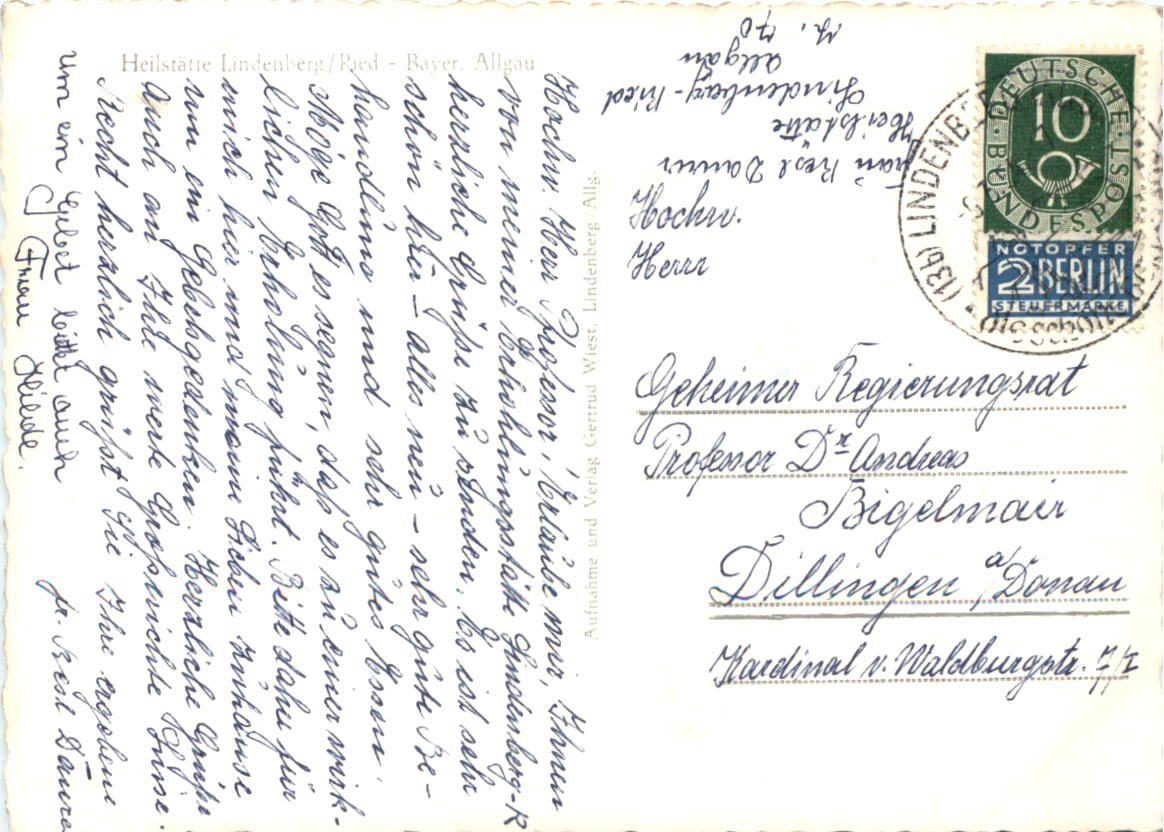 Heilstätte Lindenberg/Ried - Bayer. Allgäu
Hochw. Herr Professor! Erlaube mir, Ihnen
von meiner Erholungsstätte Lindenberg-R
herzliche Grüße zu senden. Es ist sehr
schön hier - alles neu - sehr gute Be-
handlung und sehr gutes Essen.
Möge Gott es segnen, daß es zu einer wirk-
lichen Erholung führt. Bitte daher für
mich hier und meine Lieben zuhause
um ein Gebetsgedenken. Herzliche Grüße
auch an Ihre werte
Recht herzlich grüßt Sie Ihre ergebene
Fr. Resl Daurer
Um ein Gebet bittet auch
Frau Hilde.
Aufnahme und Verlag Gertrud Wiest, Lindenberg/Allg.
Frau Resl Daurer
Heilstätte
Lindenberg-Ried
Allgäu
70
DEUTSCHE BUNDESPOST
10
NOTOPFER
2 BERLIN
STEUERMARKE
(13b) LINDENBERG
Hochw.
Herrn
Geheimer Regierungsrat
Professor Dr Andreas
Bigelmair
Dillingen a/Donau
Kardinal v. Waldburgstr. 7/I